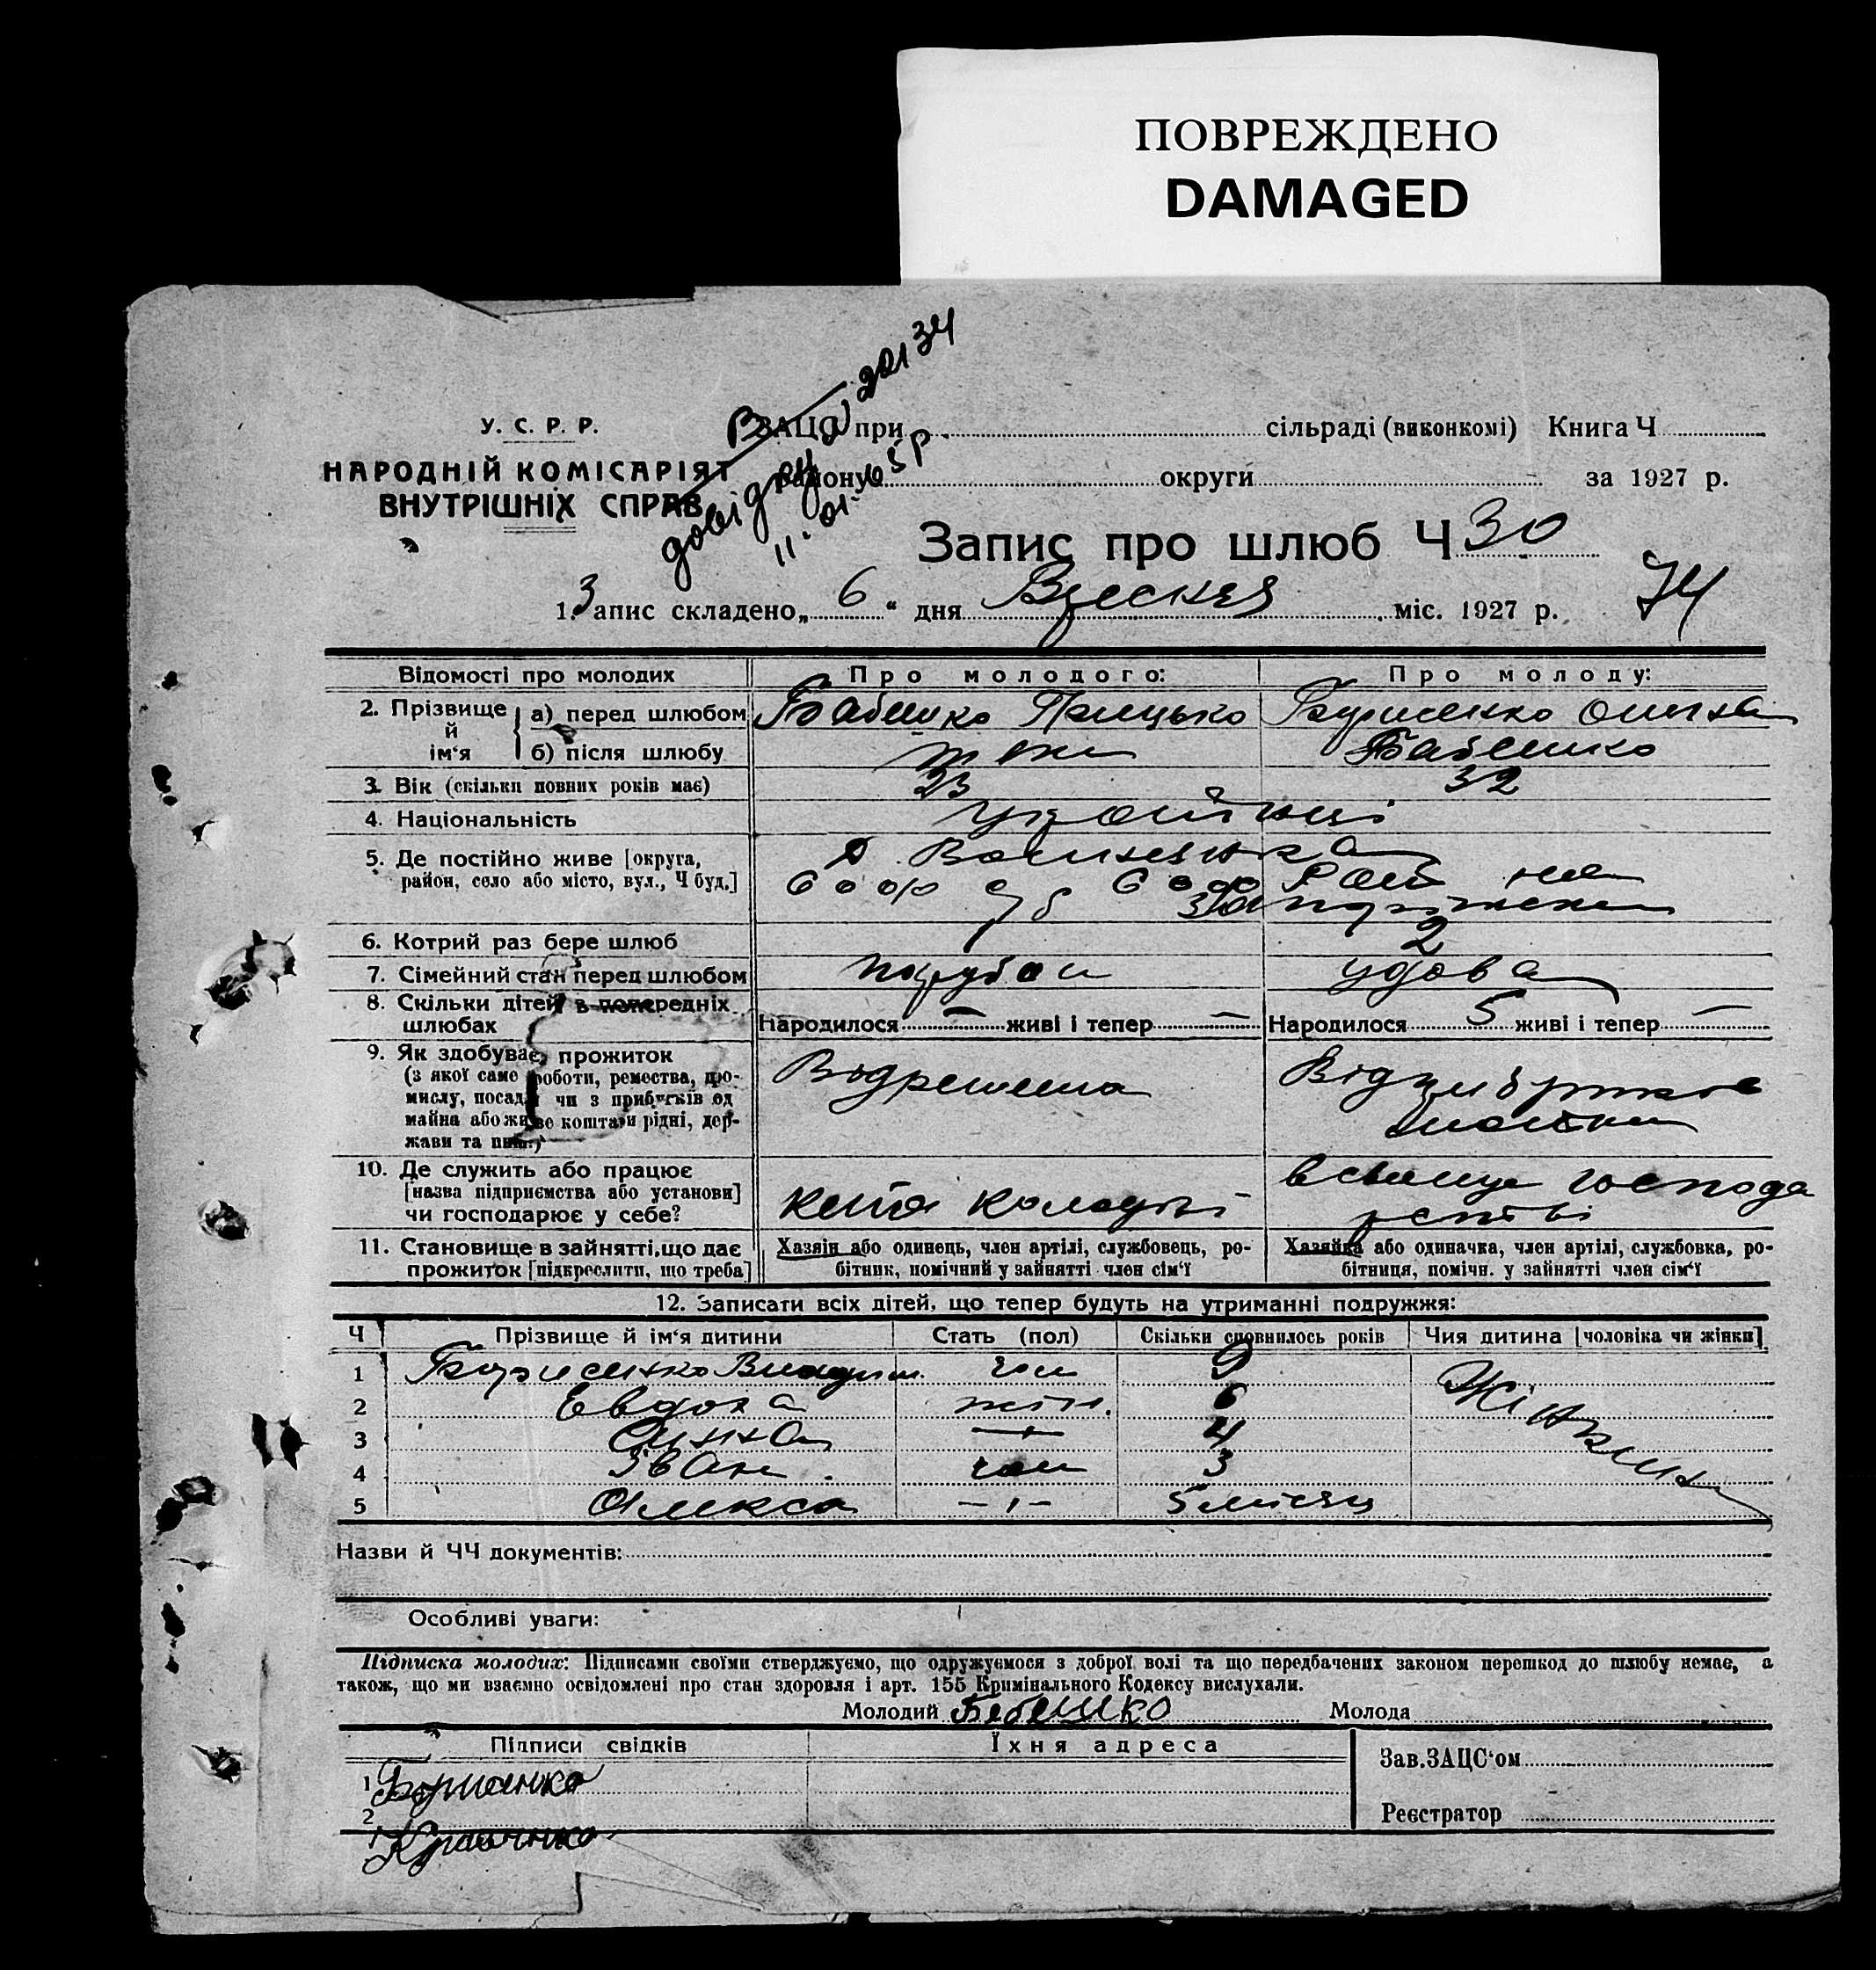 ПОВРЕЖДЕНО
DAMAGED
У. С. Р. Р.
НАРОДНІЙ КОМІСАРІЯТ
ВНУТРІШНІХ СПРАВ
довідку
11.01.
ЗАЦС при сільраді (виконкомі) Книга Ч
району округи за 1927 р.
Запис про шлюб Ч 30
74
1. Запис складено „ 6 “ дня Вресня міс. 1927 р.
Відомості про молодих Про молодого: Про молоду:
2. Прізвище й ім‘я а) перед шлюбом Бабешко Грицько Борисенко
б) після шлюбу Бабешко
3. Вік (скільки повних років має) 23 32
4. Національність
5. Де постійно живе [округа,
район, село або місто, вул., Ч буд.]
6. Котрий раз бере шлюб 1 2
7. Сімейний стан перед шлюбом парубок удова
8. Скільки дітей з попередніх
шлюбах Народилося — живі і тепер — Народилося 5 живі і тепер —
9. Як здобуває прожиток
(з якої саме роботи, ремества, про-
мислу, посади чи з прибутків од
майна або живе коштами рідні, дер-
жави та инш.)
10. Де служить або працює
[назва підприємства або установи]
чи господарює у себе?
господа
рстві
11. Становище в зайнятті, що дає
прожиток [підкреслити, що треба]
Хазяїн або одинець, член артілі, службовець, ро-
бітник, помічний у зайнятті член сім‘ї
Хазяйка або одиначка, член артілі, службовка, ро-
бітниця, помічн. у зайнятті член сім‘ї
12. Записати всіх дітей, що тепер будуть на утриманні подружжя:
Ч Прізвище й ім‘я дитини Стать (пол) Скільки сповнилось років Чия дитина [чоловіка чи жінки]
1 Борисенко чол 9 Жінкин
2 Евдоха жін. 6
3 Ганна —"— 4
4 Іван чол 3
5 Олекса —"— 5 місяц
Назви й ЧЧ документів:
Особливі уваги:
Підписка молодих: Підписами своїми стверджуємо, що одружуємося з доброї волі та що передбачених законом перешкод до шлюбу немає, а
також, що ми взаємно освідомлені про стан здоровля і арт. 155 Кримінального Кодексу вислухали.
Молодий Бебешко Молода
Підписи свідків Їхня адреса Зав. ЗАЦС‘ом
1 Борисенко
2 Кравченко
Реєстратор